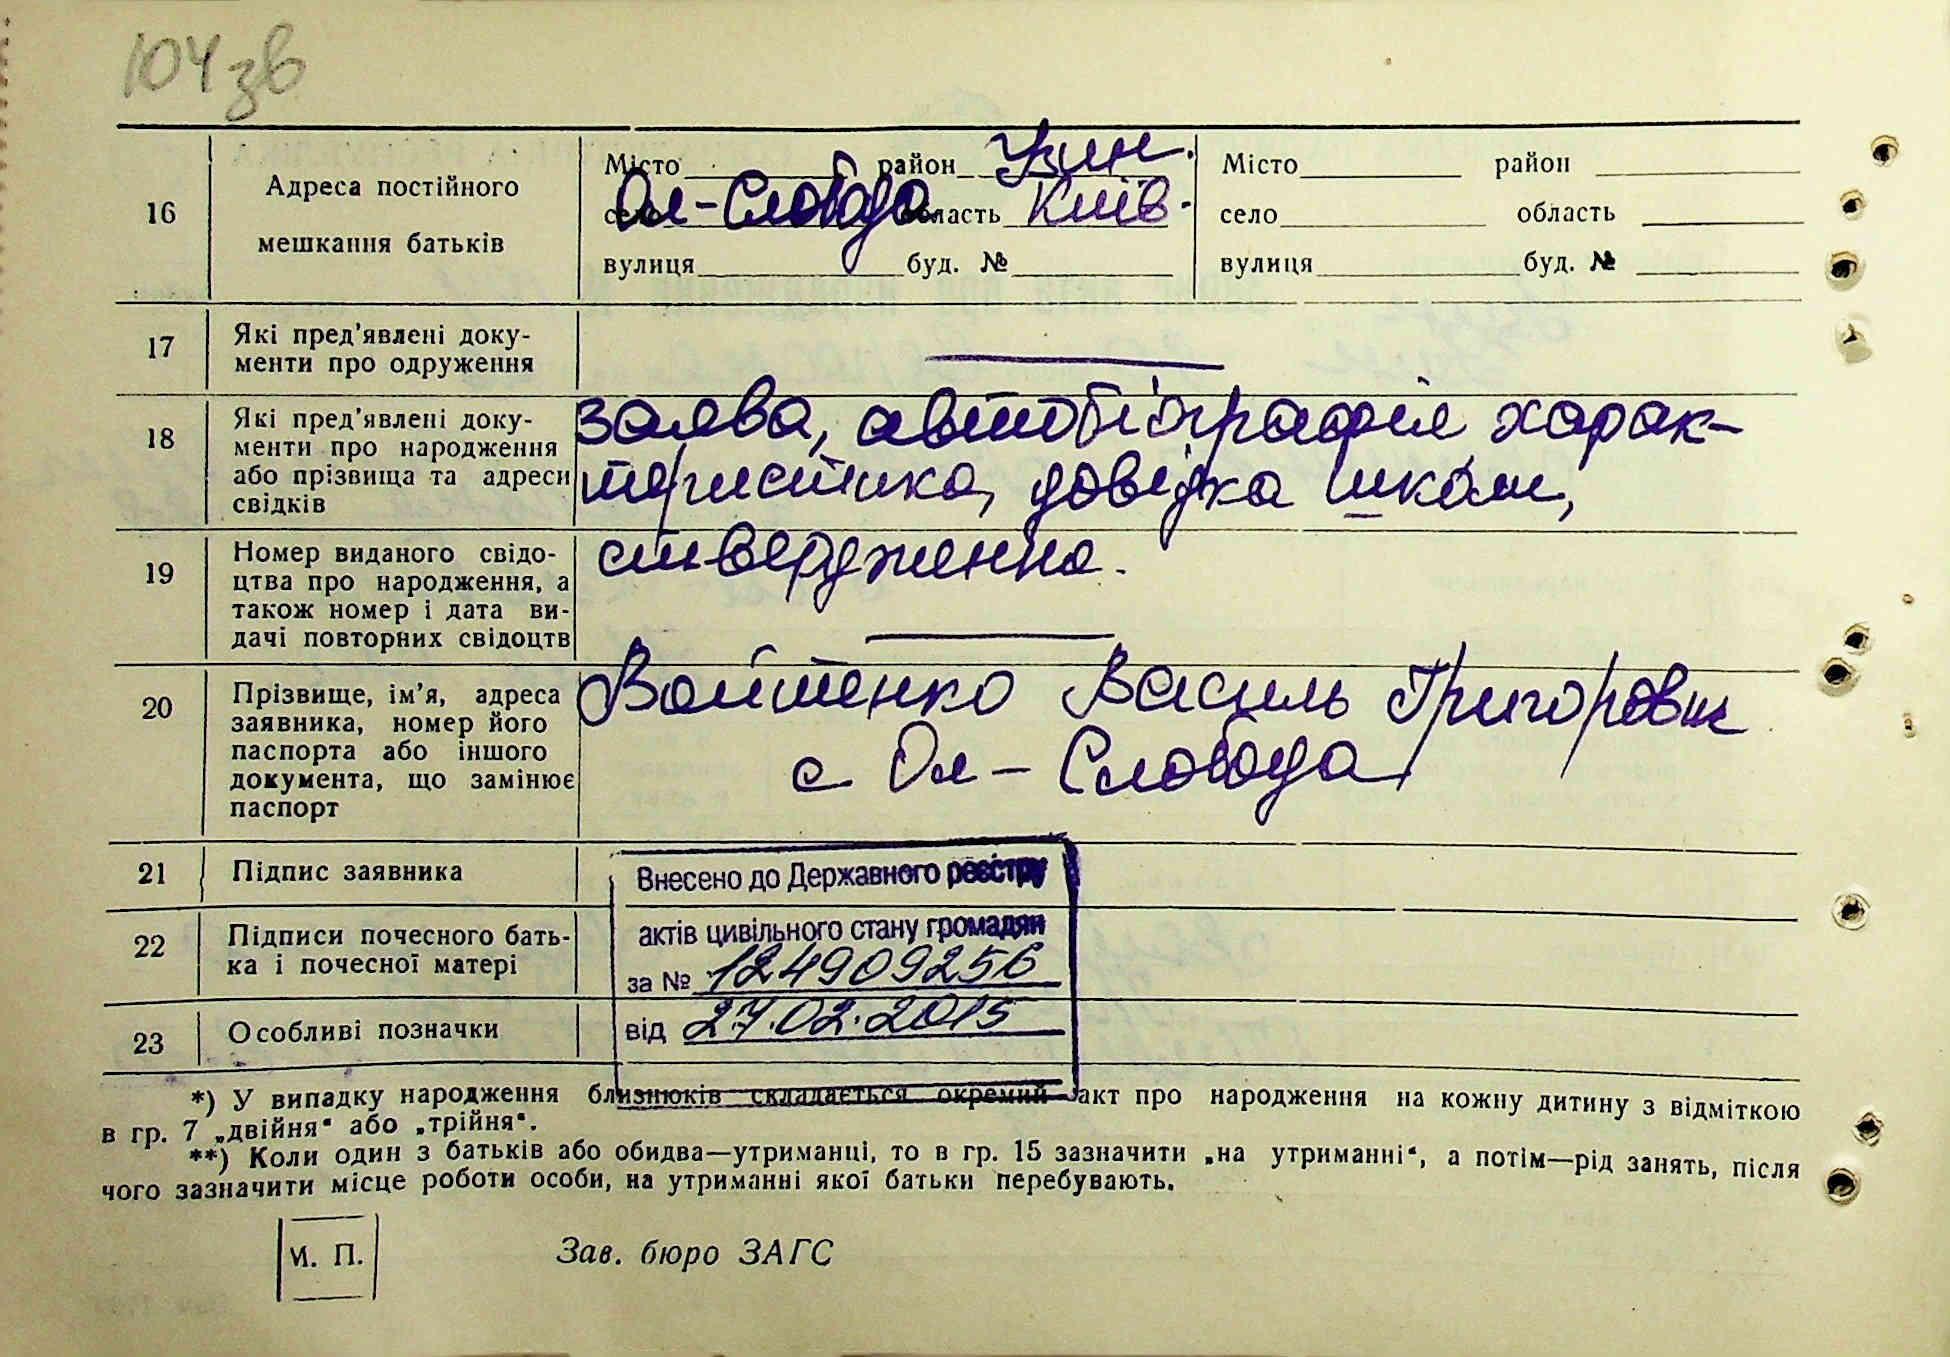 104 зв
Місто район Узин. Місто район
село Ол-Слобода область Київ. село область
16 Адреса постійного мешкання батьків
вулиця буд. № вулиця буд. №
17 Які пред'явлені доку-
менти про одруження
18 Які пред'явлені доку-
менти про народження
або прізвища та адреси
свідків
заява, автобіографія харак-
теристика, довідка школи,
ствердження.
19 Номер виданого свідо-
цтва про народження, а
також номер і дата ви-
дачі повторних свідоцтв
20 Прізвище, ім'я, адреса
заявника, номер його
паспорта або іншого
документа, що замінює
паспорт
Войтенко Василь Григорович
с Ол-Слобода
21 Підпис заявника
22 Підписи почесного бать-
ка і почесної матері
23 Особливі позначки
Внесено до Державного реєстру
актів цивільного стану громадян
за № 124909256
від 27.02.2015
*) У випадку народження близнюків складається окремий акт про народження на кожну дитину з відміткою
в гр. 7 „двійня“ або „трійня“.
**) Коли один з батьків або обидва—утриманці, то в гр. 15 зазначити „на утриманні“, а потім—рід занять, після
чого зазначити місце роботи особи, на утриманні якої батьки перебувають.
М. П.
Зав. бюро ЗАГС